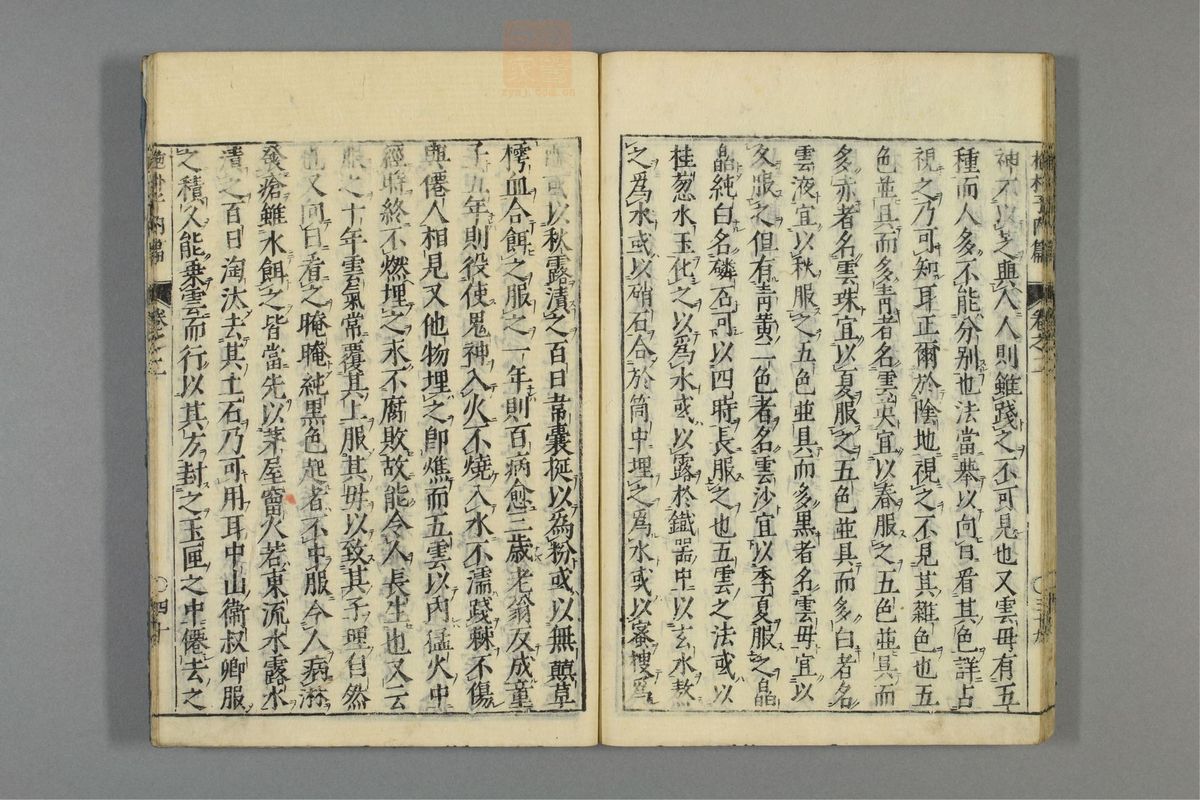 神不以芝與人人則雖踐之不可見也又雲母有五
種而人多不能分別也法當舉以向日看其色詳占
視之乃可知耳正爾於陰地視之不見其雜色也五
色並具而多青者名雲英宜以春服之五色並具而
多赤者名雲珠宜以夏服之五色並具而多白者名
雲液宜以秋服之五色並具而多黑者名雲母宜以
冬服之但有青黃二色者名雲沙宜以季夏服之晶
晶純白名磷石可以四時長服之也五雲之法或以
桂葱水玉化之以為水或以露於鐵器中以玄水熬
之為水或以硝石合於筒中埋之為水或以蜜搜為
酪或以秋露漬之百日韋囊挻以為粉或以無巔草
樗血合餌之服之一年則百病愈三歲老翁反成童
子五年則役使鬼神入火不燒入水不濡踐棘不傷
與僊人相見又他物埋之即燋而五雲以內猛火中
經時終不燃埋之永不腐敗故能令人長生也又云
服之十年雲氣常覆其上服其母以致其子理自然
也又向日看之晻晻純黑色起者不中服令人病淋
發瘡雖水餌之皆當先以茅屋霤火若東流水露水
漬之百日淘汰去其土石乃可用耳中山衞叔卿服
之積久能乗雲而行以其方封之玉匣之中僊去之
卷之二